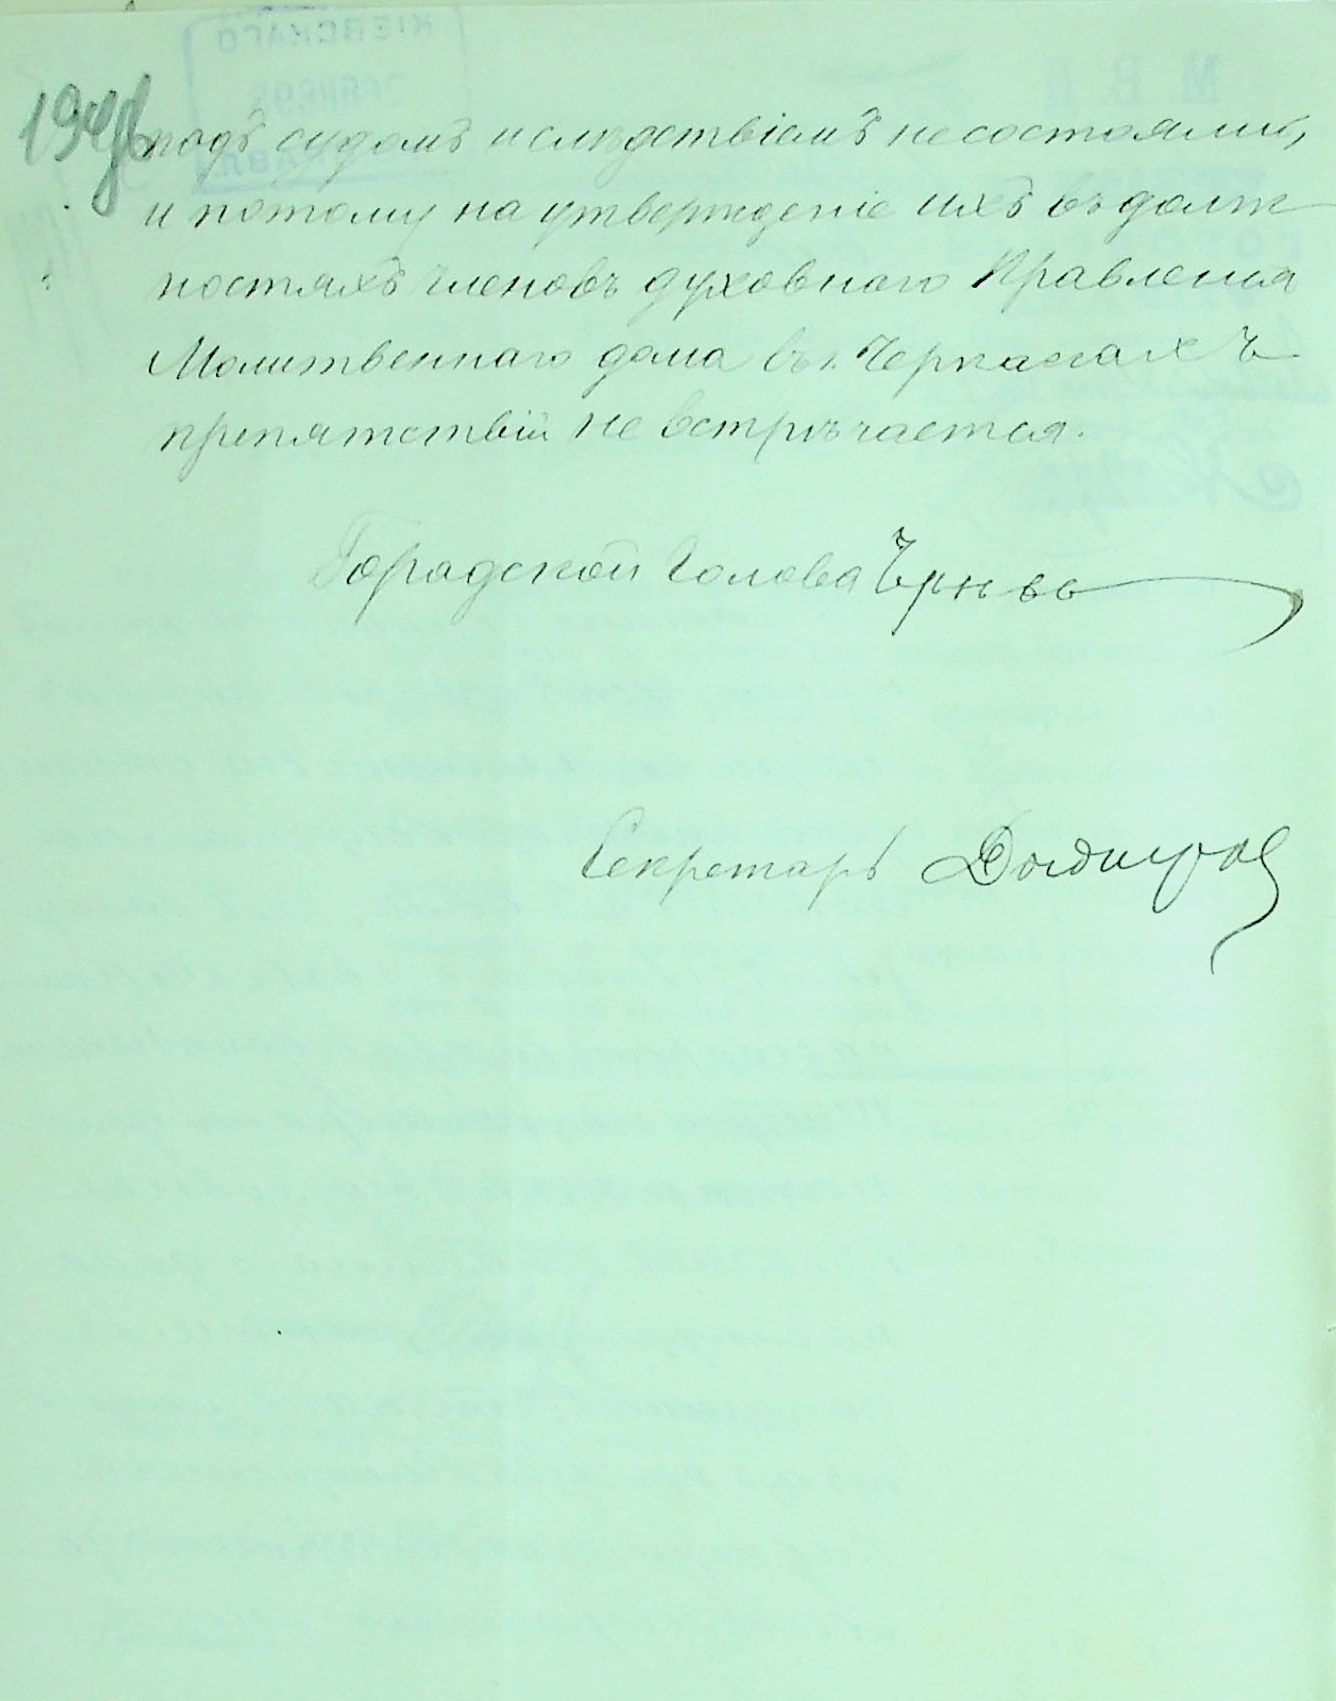 подъ судомъ и слѣдствіемъ не состояли,
и потому на утвержденіе ихъ въ долж
ностяхъ членовъ духовнаго Правленія
Молитвеннаго дома въ г. Черкасахъ
препятствій не встрѣчается.
Городской Голова
Секретарь